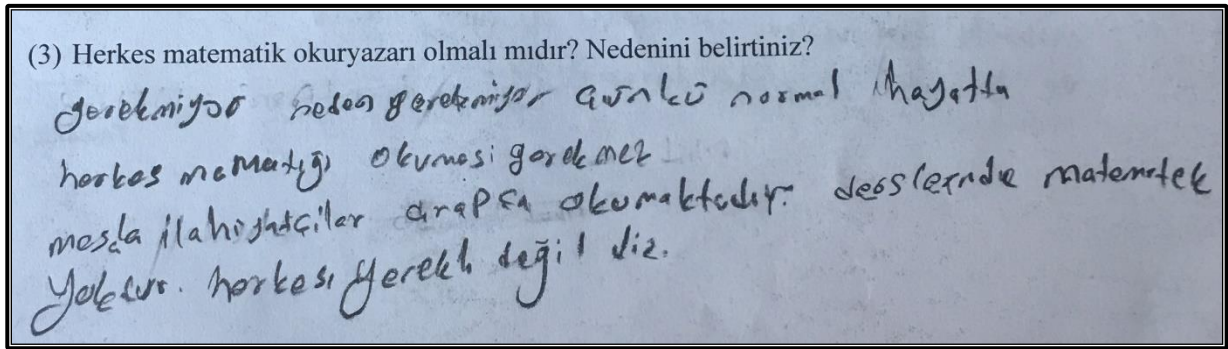 (3) Herkes matematik okuryazarı olmalı mıdır? Nedenini belirtiniz?
gerekmiyor neden gerekmiyor çünkü normal hayatta
herkes mematiği okumasi gerekmez
mesla ilahiyatçiler arapça okumaktadır. derslerinde matematek
yoktur. herkesi gerekli değil diz.